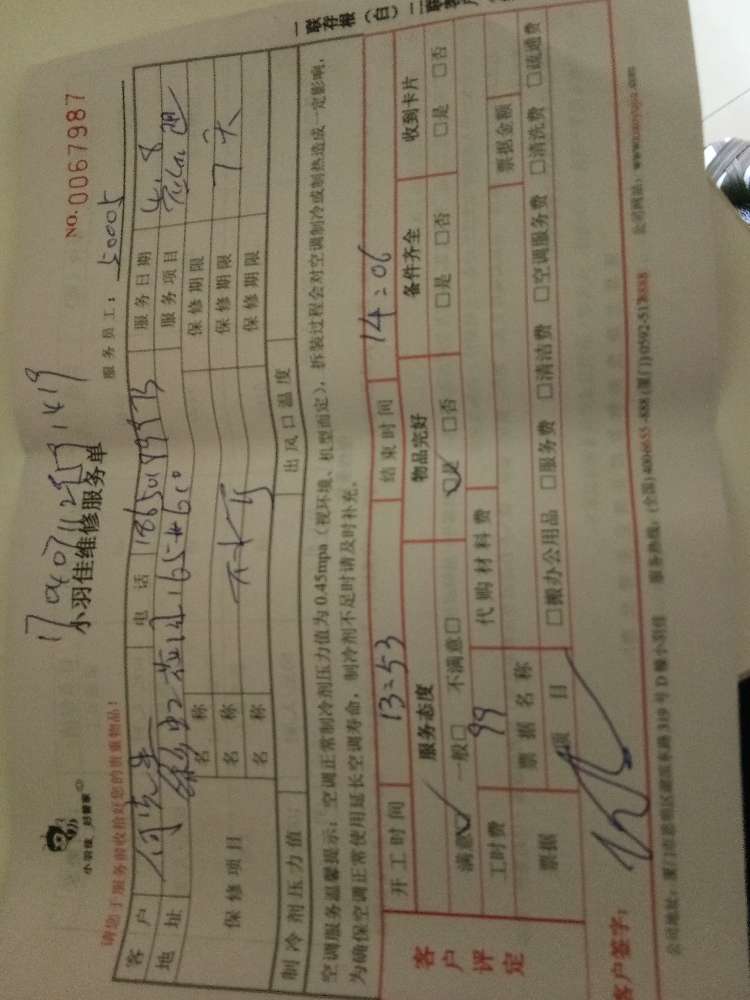 一联存根（白）二联
小羽佳 好管家
NO.0067987
小羽佳维修服务单
请您于服务前收拾好您的贵重物品！
服务员工： 50005
客户 何先生 电话 服务日期 4.8
地址 服务项目
保修项目 名称 保修期限
名称 保修期限 7天
名称 保修期限
制冷剂压力值 出风口温度
空调服务温馨提示：空调正常制冷剂压力值为0.45mpa（视环境、机型而定），拆装过程会对空调制冷或制热造成一定影响，
为确保空调正常使用延长空调寿命，制冷剂不足时请及时补充。
开工时间 13:53 结束时间 14:06
客户评定 服务态度 物品完好 备件齐全 收到卡片
满意☑ 一般□ 不满意□ ☑是 □否 □是 □否 □是 □否
工时费 99 代购材料费
票据 票据名称 票据金额
项目 □搬办公用品 □服务费 □清洁费 □空调服务费 □清洗费 □疏通费
客户签字：
公司地址：厦门市思明区湖滨东路319号D幢小羽佳 服务热线：(全国)400-6655-888(厦门)0592-5178888 公司网站：www.xiaoyujia.com